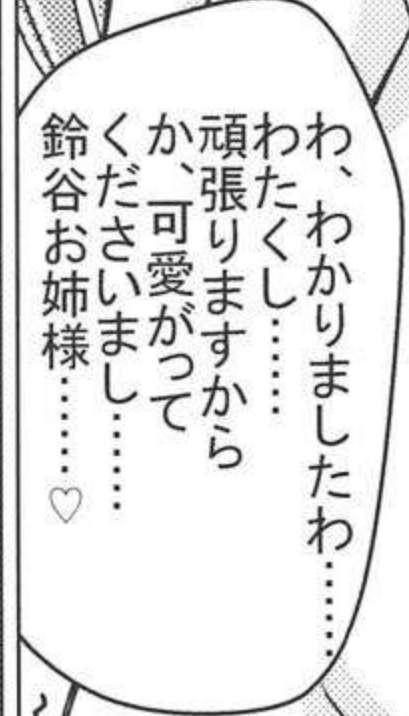 わ、わかりましたわ……
わたくし……
頑張りますから
か、可愛がって
くださいまし……
鈴谷お姉様……♡